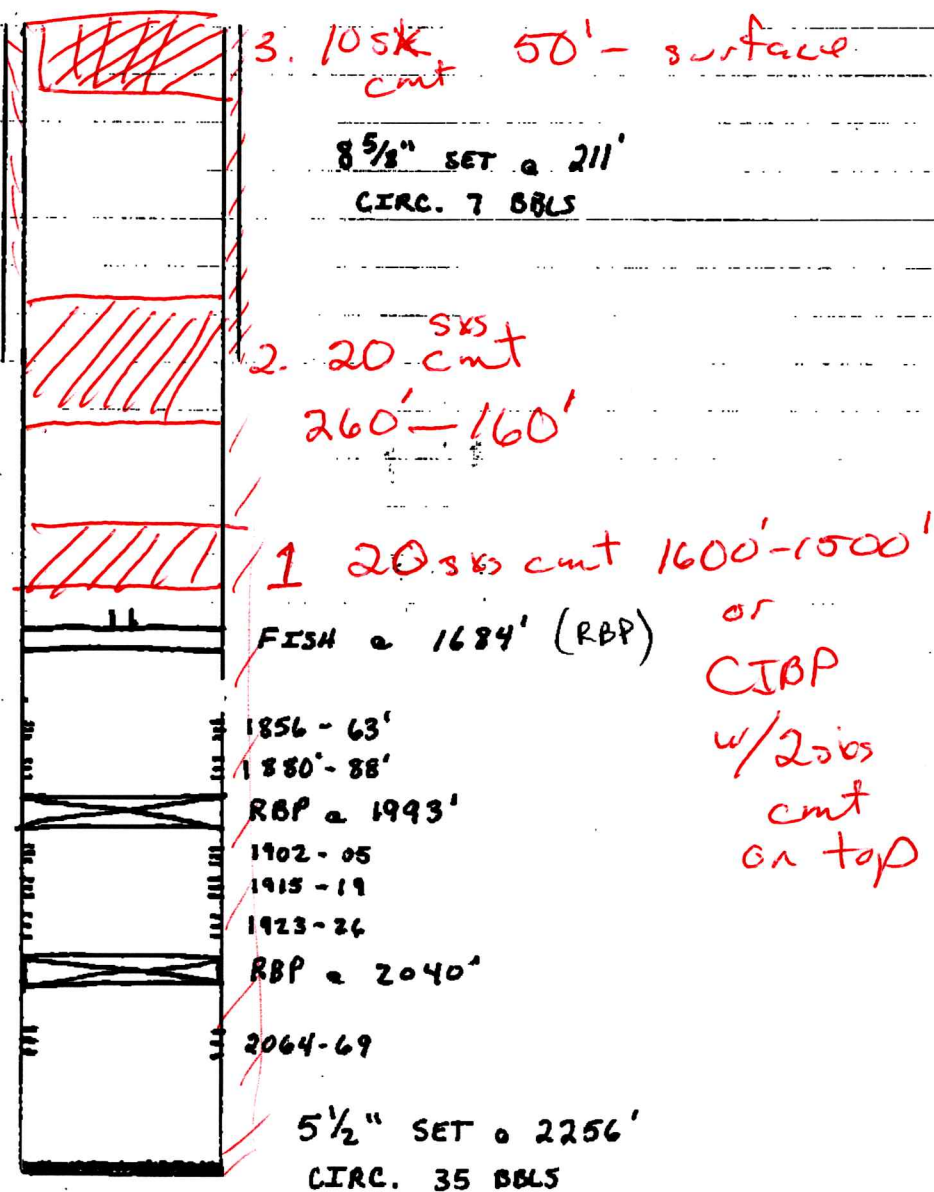 3. 10 sk 50' - surface
cmt
8 5/8" SET @ 211'
CIRC. 7 BBLS
sxs
2. 20 cmt
260' - 160'
1 20 sxs cmt 1600'-1500'
or
CIBP
w/2 sxs
cmt
on top
FISH @ 1684' (RBP)
1856 - 63'
1880' - 88'
RBP @ 1993'
1902 - 05
1915 - 19
1923 - 26
RBP @ 2040'
2064 - 69
5 1/2" SET @ 2256'
CIRC. 35 BBLS